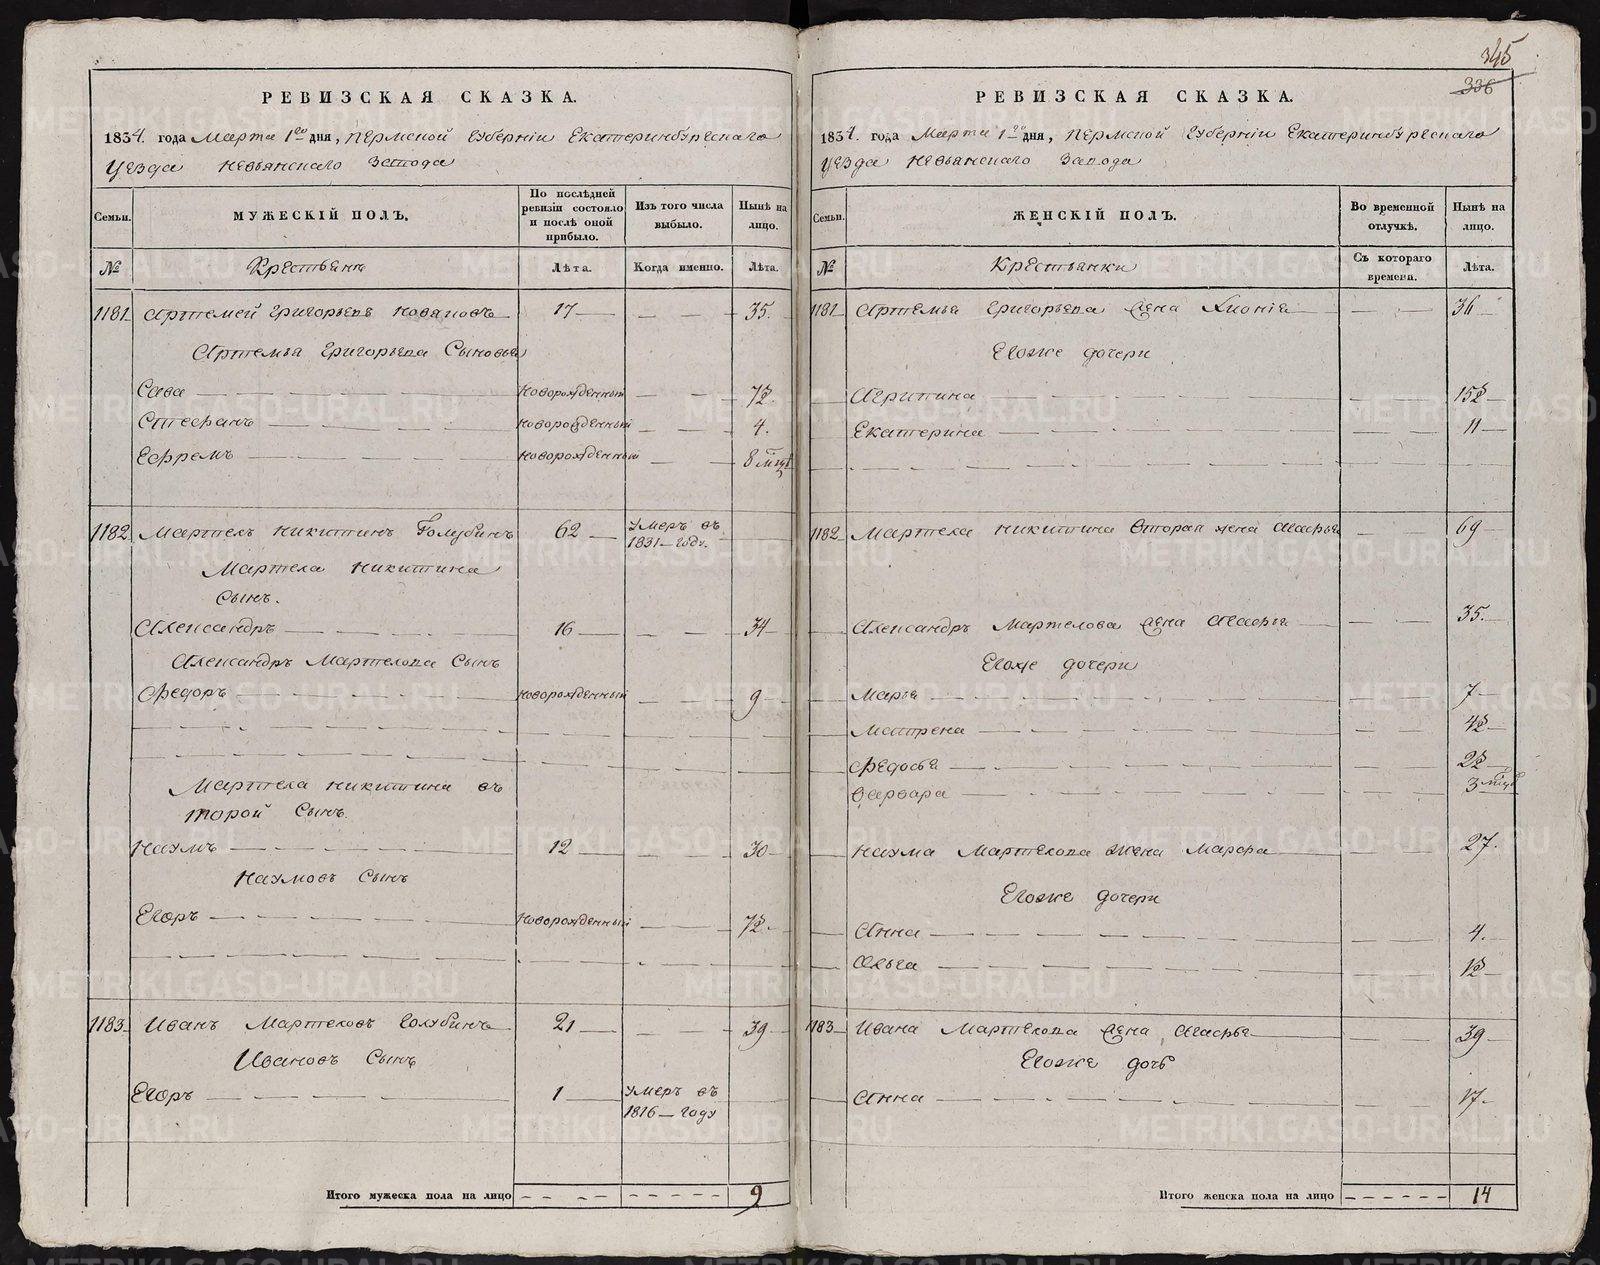 345
336
РЕВИЗСКАЯ СКАЗКА.
1834. года Марта 1го дня, Пермской Губерніи Екатеринбургскаго
Уезда Невьянскаго Завода
Семьи.
МУЖЕСКІЙ ПОЛЪ.
По послѣдней ревизіи состояло и послѣ оной прибыло.
Изъ того числа выбыло.
Нынѣ на лицо.
№
Крестьянъ
Лѣта.
Когда именно.
Лѣта.
1181 Артемей Григорьевъ 17 35.
Артемья Григорьева Сыновья
Сава новорожденный 7½.
Стефанъ новорожденный 4.
Ефремъ новорожденный 8 мцъ
1182 Мартелъ Никитинъ Голубинъ 62 Умеръ въ 1831 году.
Мартела Никитина
Сынъ.
Александръ 16 34
Александръ Мартелова Сынъ
Федоръ новорожденный 9
Мартела Никитина въ
торой Сынъ.
Наумъ 12 30
Наумовъ Сынъ
Егоръ новорожденный 7½
1183 Иванъ Мартеловъ Голубинъ 21 39
Ивановъ Сынъ
Егоръ 1 Умеръ въ 1816 году
Итого мужеска пола на лицо 9
РЕВИЗСКАЯ СКАЗКА.
1834. года Марта 1го дня, Пермской Губерніи Екатеринбургскаго
Уезда Невьянскаго Завода
Семьи.
ЖЕНСКІЙ ПОЛЪ.
Во временной отлучкѣ.
Нынѣ на лицо.
№
Крестьянки
Съ котораго времени.
Лѣта.
1181 Артемья Григорьева жена Хионія 36
Егоже дочери
Агрипина 15½
Екатерина 11
1182 Мартела Никитина вторая жена Агафья 69
Александръ Мартелова жена Агафья 35.
Егоже дочери
Марья 7
Матрена 4½
Федосья 2½
Варвара 3 мцъ
Наума Мартелова жена Марфа 27.
Егоже дочери
Анна 4.
Ольга 1½
1183 Ивана Мартелова жена Агафья 39
Егоже дочь
Анна 17.
Итого женска пола на лицо 14
METRIKI.GASO-URAL.RU